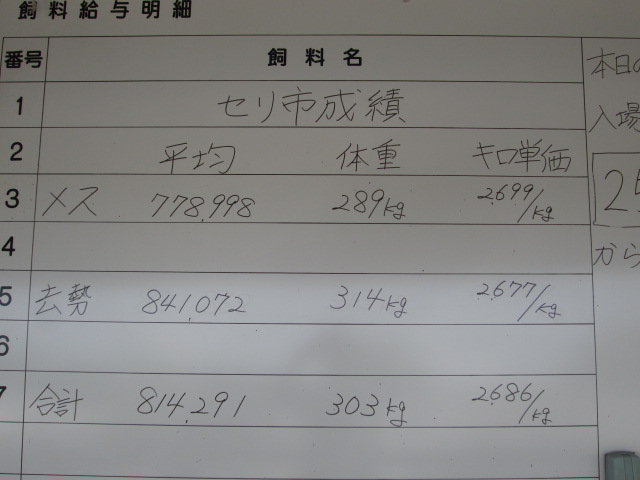 飼料給与明細
番号 飼料名 本日の
1 セリ市成績 入場
2 平均 体重 キロ単価
3 メス 778,998 289kg 2,699/kg
4 から
5 去勢 841,072 314kg 2,677/kg
6
7 合計 814,291 303kg 2,686/kg